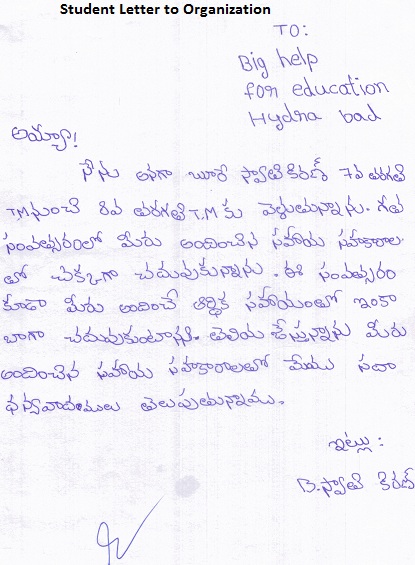 Student Letter to Organization
TO:
Big help
for education
Hydra bad
అయ్యా!
నేను అనగా బూరె స్వాతికిరణ్ 7వ తరగతి
T.M నుంచి 8వ తరగతి T.M కు వెళ్తున్నాను. గత
సంవత్సరంలో మీరు అందించిన సహాయ సహకారాల
తో చక్కగా చదువుకున్నాను. ఈ సంవత్సరం
కూడా మీరు అందించే ఆర్థిక సహాయంతో ఇంకా
బాగా చదువుకుంటానని. తెలియ చేస్తున్నాను మీరు
అందించిన సహాయ సహకారాలతో మేము సదా
ధన్యవాదములు తెలుపుతున్నాము.
ఇట్లు:
B. స్వాతి కిరణ్